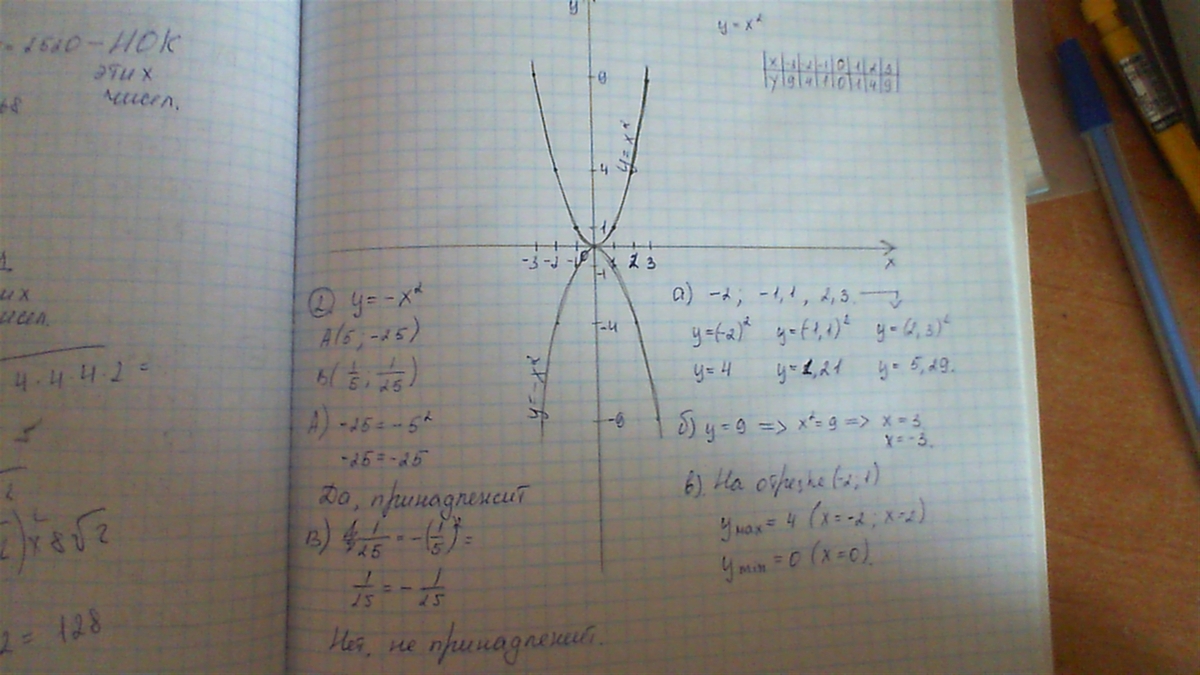 = 2520 - НОК
этих
чисел.
4·4·4·2 =
2 = 128
y
y = x²
x -3 -2 -1 0 1 2 3
y 9 4 1 0 1 4 9
9
y = x²
4
1
-3 -2 -1 0 1 2 3
x
-1
-4
y = -x²
-9
② y = -x²
A(5; -25)
B(1/5; 1/25)
A) -25 = -5²
-25 = -25
Да, принадлежит
B) 1/25 = -(1/5)² =
1/25 = - 1/25
Нет, не принадлежит.
а) -2; -1,1, 2,3.
y=(-2)² y=(-1,1)² y=(2,3)²
y=4 y=1,21 y=5,29.
б) y = 9 => x² = 9 => x = 3
x = -3.
в). На отрезке (-2,1)
y max = 4 (x=-2; x=2)
y min = 0 (x=0).